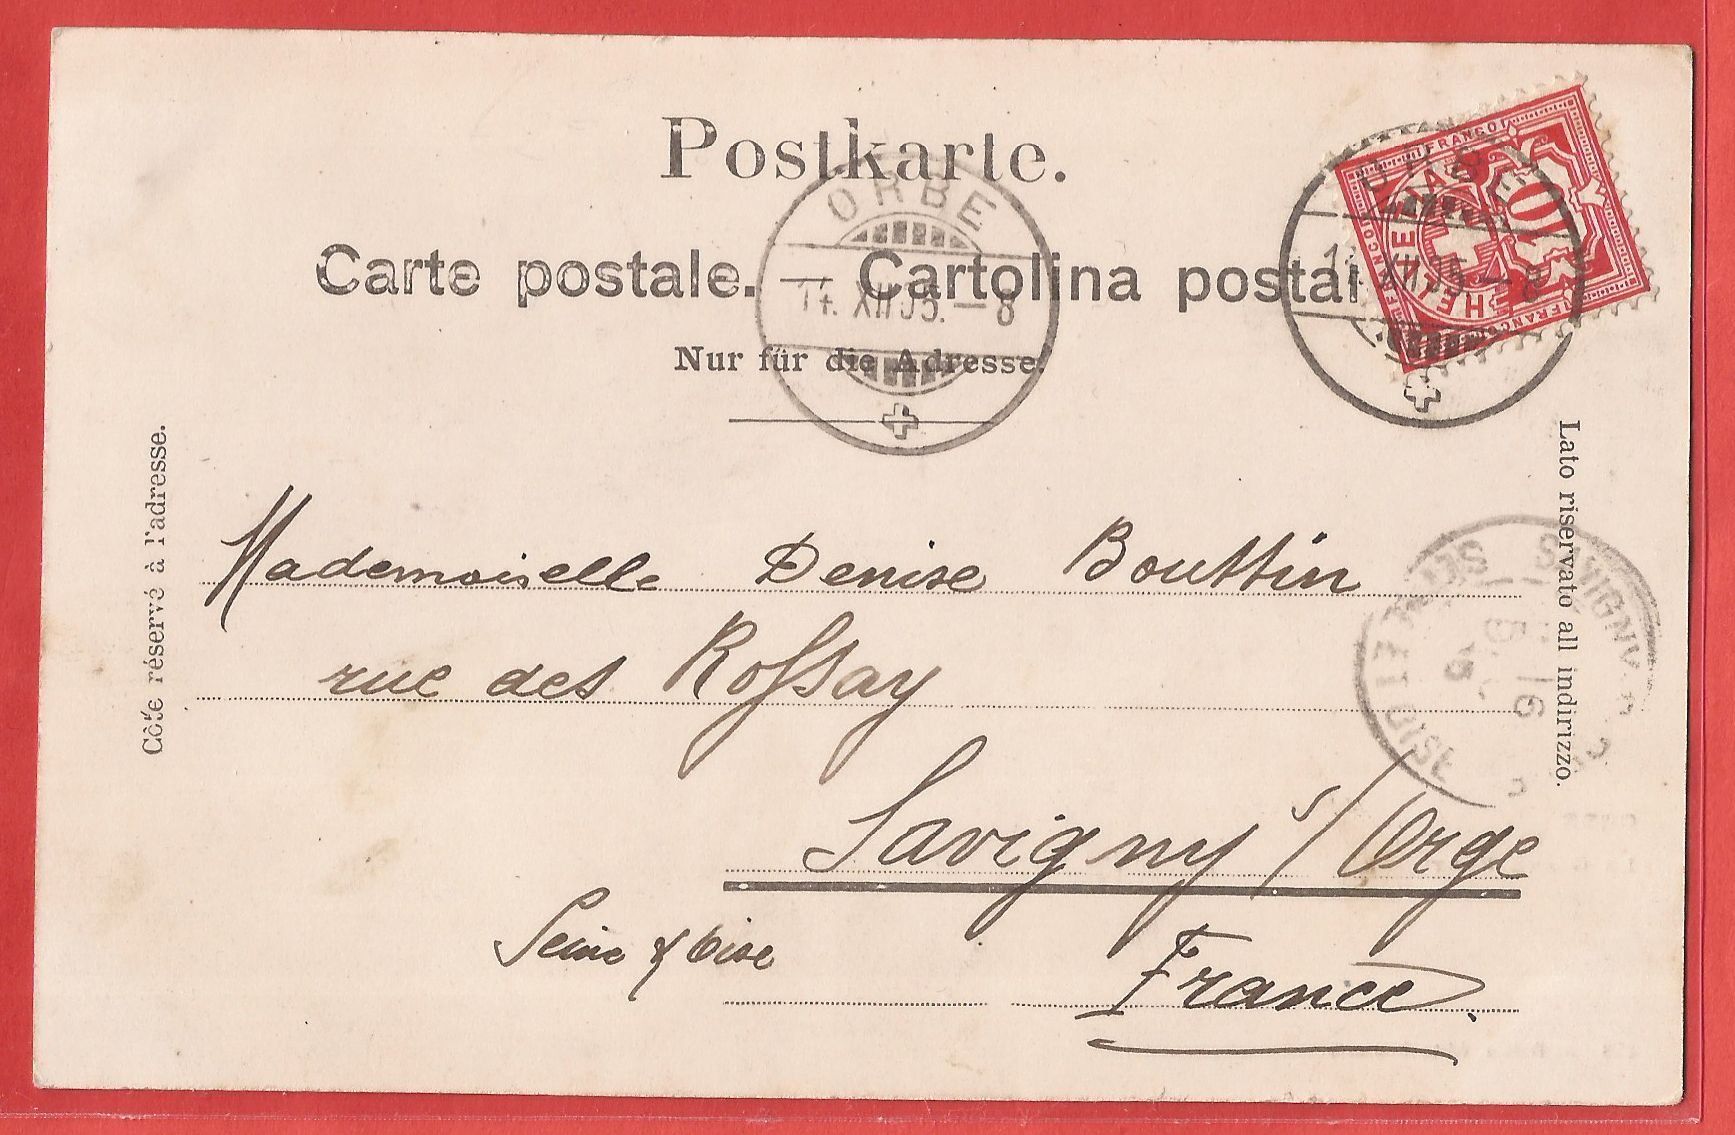 Postkarte.
Carte postale. — Cartolina postal
Nur für die Adresse.
ORBE
14. XII 05. — 8
FRANCO
HELVETIA
10
FRANCO
Côté réservé à l'adresse.
Lato riservato all indirizzo.
SAVIGNY
SEINE ET OISE
Mademoiselle Denise Bouttin
rue des Rossay
Savigny s/ Orge
Seine & Oise
France.